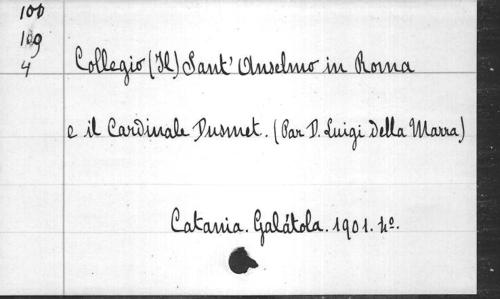 100
109
4
Collegio (Il) Sant' Anselmo in Roma
e il Cardinale Dusmet. (Par D. Luigi Della Marra)
Catania. Galátola. 1901. 4º.